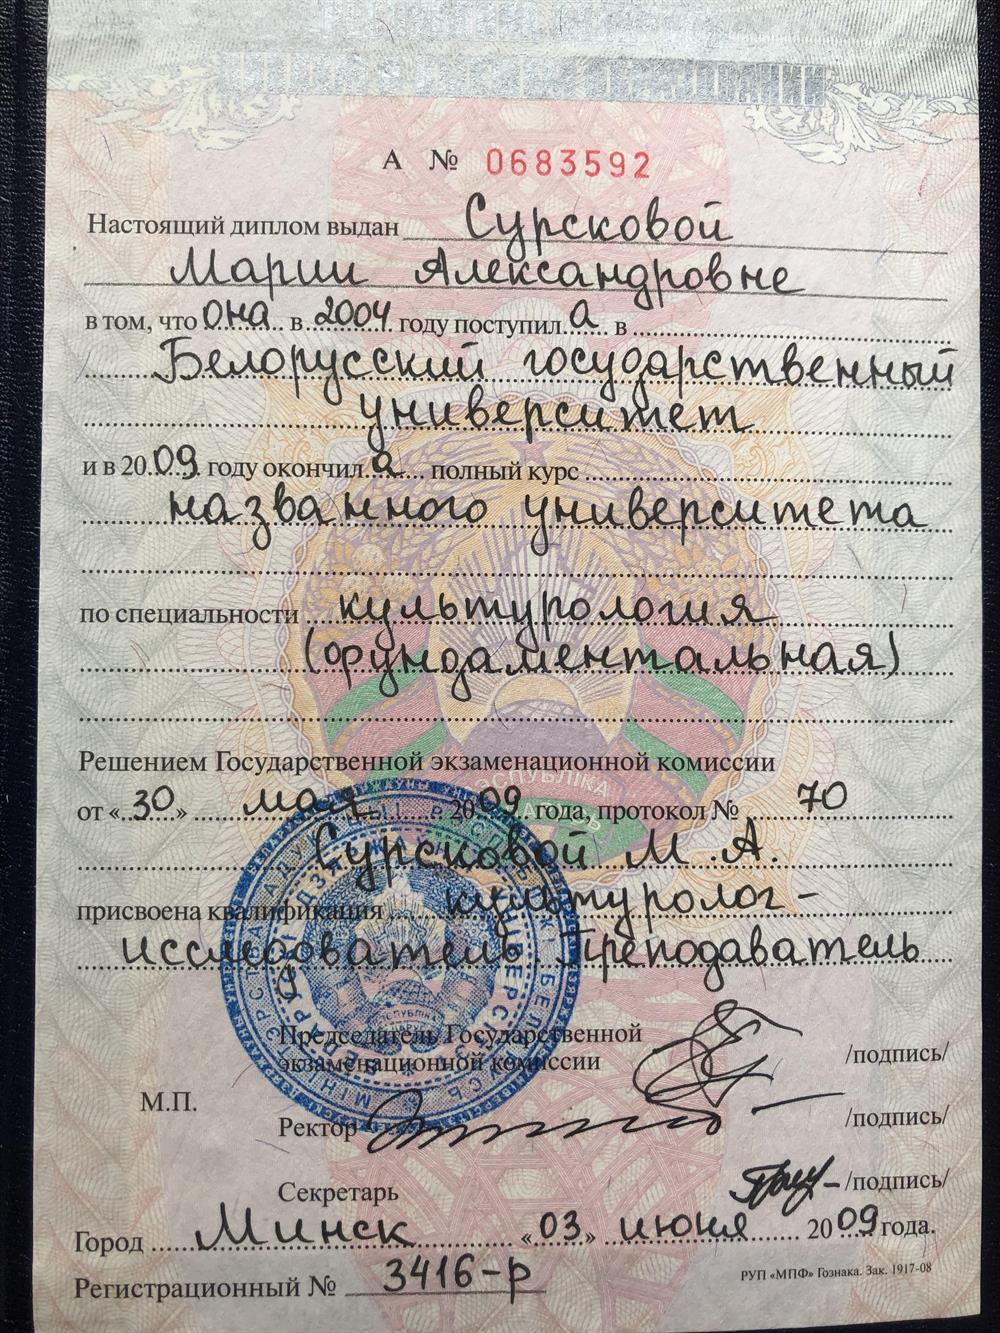 А № 0683592
Настоящий диплом выдан Сурсковой
Марии Александровне
в том, что она в 2004 году поступила в
Белорусский государственный
университет
и в 2009 году окончила полный курс
названного университета
по специальности культурология
(фундаментальная)
Решением Государственной экзаменационной комиссии
от «30» мая 2009 года, протокол № 70
Сурсковой М.А.
присвоена квалификация культуролог-
исследователь. Преподаватель
Председатель Государственной
экзаменационной комиссии /подпись/
М.П.
Ректор /подпись/
Секретарь /подпись/
Город Минск «03» июня 2009 года.
Регистрационный № 3416-р
РУП «МПФ» Гознака. Зак. 1917-08